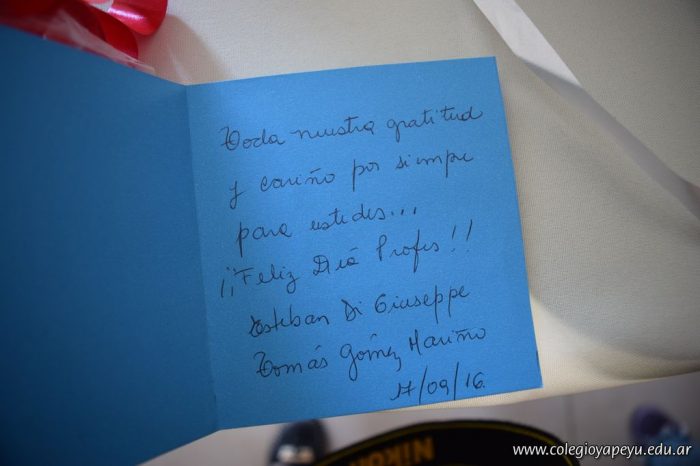 Toda nuestra gratitud
y cariño por siempre
para ustedes...
¡¡Feliz Día Profes!!
Esteban Di Giuseppe
Tomás Gómez Mariño
17/09/16
NIKON
www.colegioyapeyu.edu.ar